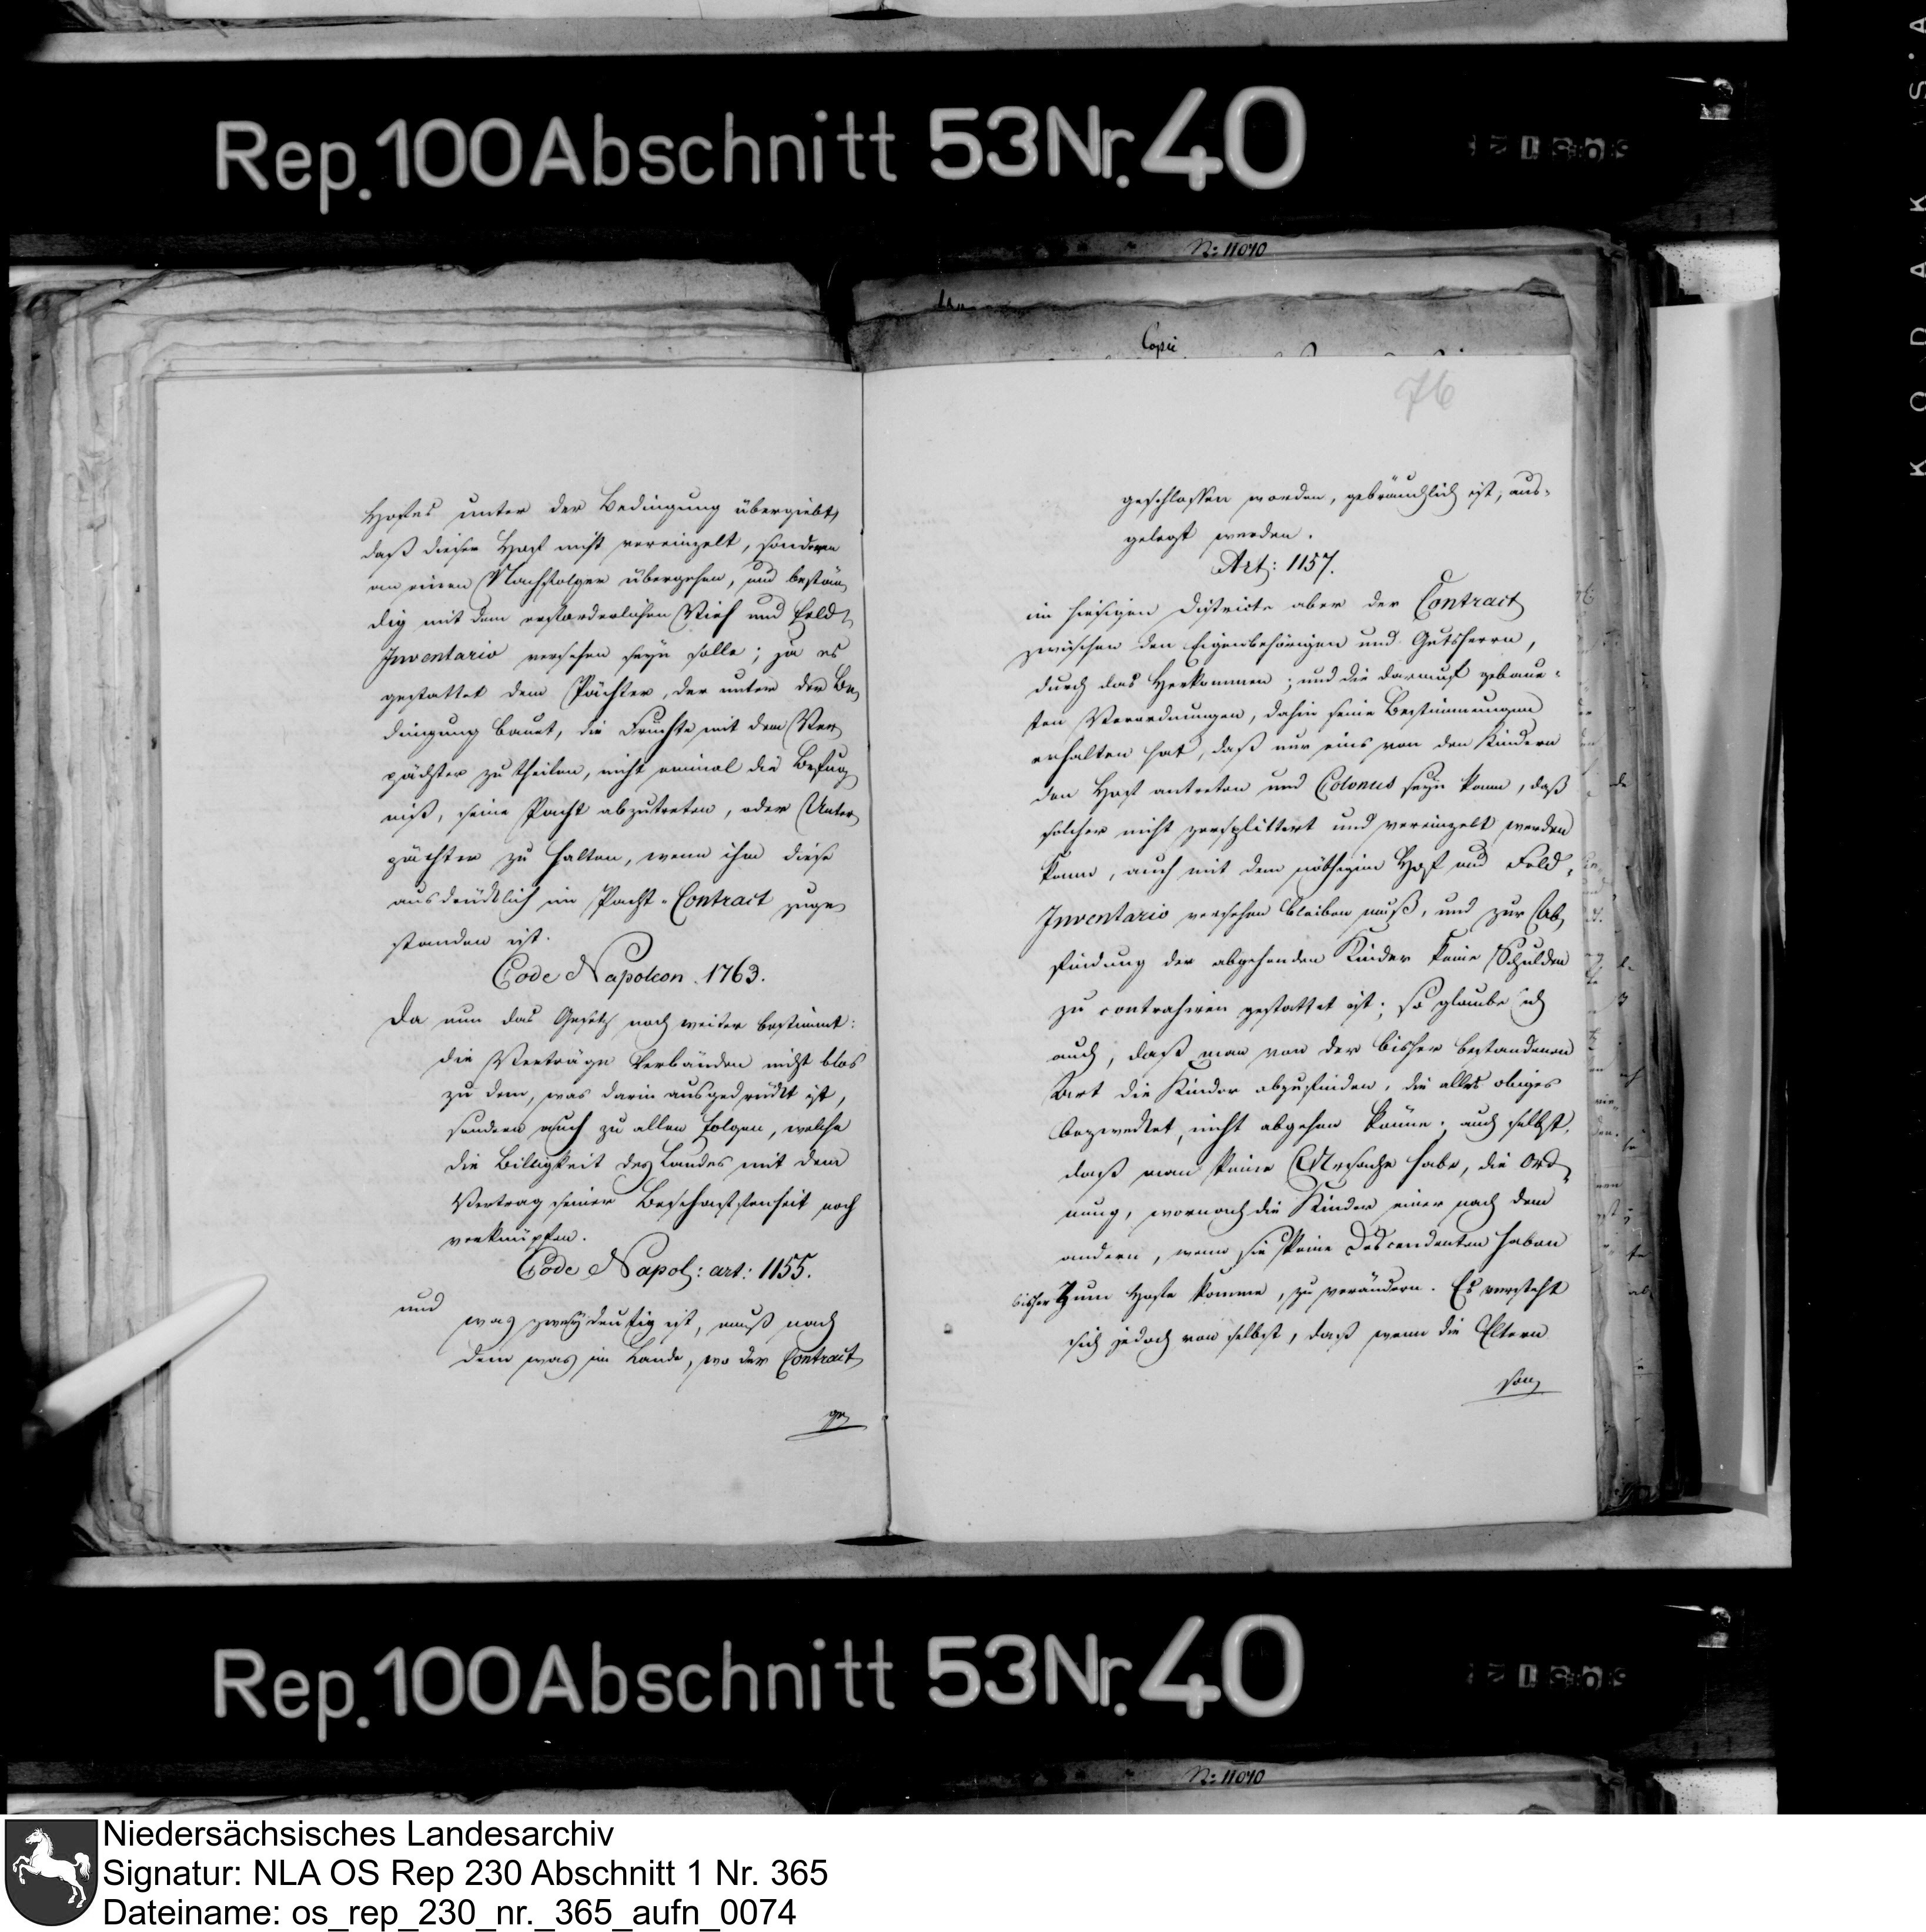 Rep. 100 Abschnitt 53 Nr. 40
No: 11040
Copie
76
Hofes unter der Bedingung übergiebt,
daß dieser Hof nicht vereinzelt, sondern
an einen Nachfolger übergehen, und bestän
dig mit dem erforderlichen Vieh und Feld
Inventario versehen seyn solle; ja es
gestattet dem Pächter, der unter der Be
dingung bauet, die Früchte mit dem Ver
pächter zu theilen, nicht einmal die Befug
niß, seine Pacht abzutreten, oder Unter
pächter zu halten, wenn ihm diese
ausdrücklich im Pacht-Contract zuge
standen ist.
Code Napoleon. 1763.
Da nun das Gesetz noch weiter bestimmt:
die Verträge verbänden nicht blos
zu dem, was darin ausgedrückt ist,
sondern auch zu allen Folgen, welche
die Billigkeit des Landes mit dem
Vertrag seiner Beschaffenheit nach
verknüpfen.
Code Napol: art: 1155.
und
was zweydeutig ist, muß nach
dem was im Lande, wo der Contract
ge
geschlossen worden, gebräuchlich ist, aus-
gelegt werden.
Art: 1157.
im hiesigen Districte aber der Contract
zwischen den Eigenbehörigen und Gutsherrn,
durch das Herkommen; und die darauf gebaue-
ten Verordnungen, dahin seine Bestimmungen
erhalten hat, daß nur eins von den Kindern
den Hof antreten und Colonus seyn kann, daß
solcher nicht zersplittert und vereinzelt werden
kann, auch mit dem nöthigen Hof und Feld,
Inventario versehen bleiben muß, und zur Ab
findung der abgehenden Kinder keine Schulden
zu contrahiren gestattet ist; so glaube ich
auch, daß man von der bisher bestandenen
Art die Kinder abzufinden, die alles obiges
bezwecket, nicht abgehen könne; auch selbst,
daß man keine Ursache habe, die Ord
nung, wornach die Kinder einer nach dem
andern, wenn sie keine Descendenten haben
bisher zum Hofe komme, zu verändern. Es versteht
sich jedoch von selbst, daß wenn die Eltern
son
Rep. 100 Abschnitt 53 Nr. 40
No: 11040
KODAK
Niedersächsisches Landesarchiv
Signatur: NLA OS Rep 230 Abschnitt 1 Nr. 365
Dateiname: os_rep_230_nr._365_aufn_0074